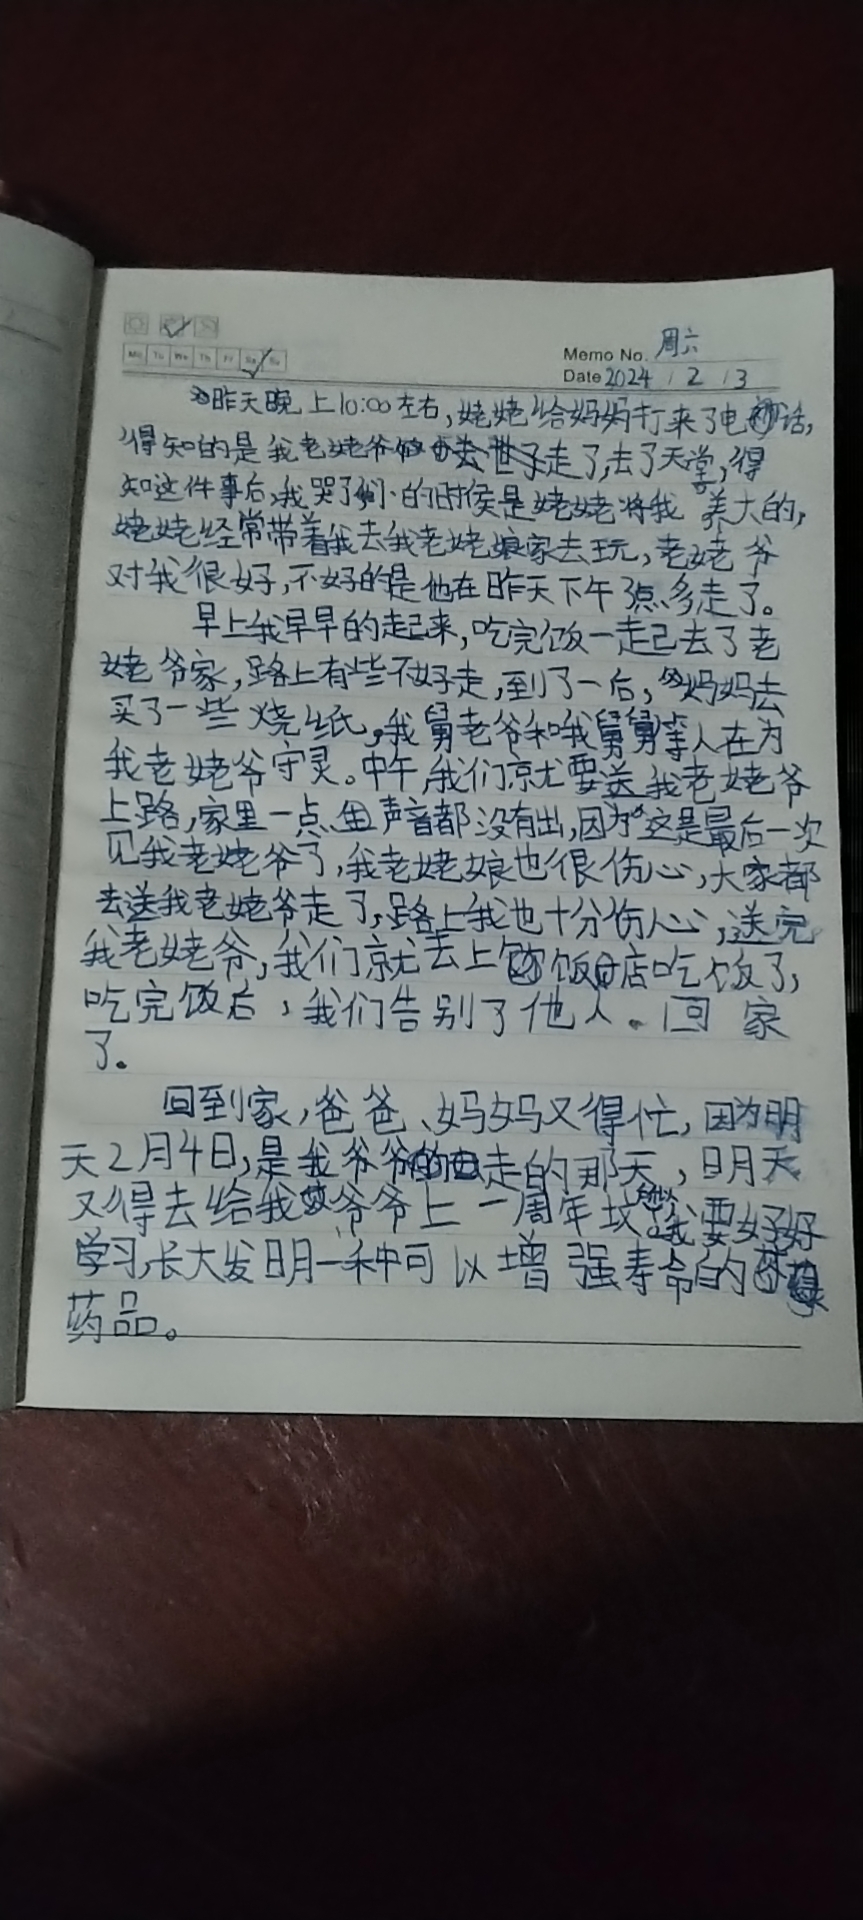 Mo Tu We Th Fr Sa Su
Memo No. 周六
Date 2024 / 2 / 3
昨天晚上10:00左右,姥姥给妈妈打来了电话,
得知的是我老姥爷走了,去了天堂,得
知这件事后,我哭了,小的时候是姥姥将我养大的,
姥姥经常带着我去我老姥娘家去玩,老姥爷
对我很好,不好的是他在昨天下午3点多走了。
早上我早早的起来,吃完饭一走己去了老
姥爷家,路上有些不好走,到了一后,妈妈去
买了一些烧纸,我舅老爷和我舅舅等人在为
我老姥爷守灵。中午,我们就要送我老姥爷
上路,家里一点声音都没有出,因为这是最后一次
见我老姥爷了,我老姥娘也很伤心,大家都
去送我老姥爷走了,路上我也十分伤心,送完
我老姥爷,我们就去上饭店吃饭了,
吃完饭后,我们告别了他人。回家
了。
回到家,爸爸、妈妈又得忙,因为明
天2月4日,是我爷爷走的那天,明天
又得去给我爷爷上一周年坟。我要好好
学习,长大发明一种可以增强寿命的
药品。